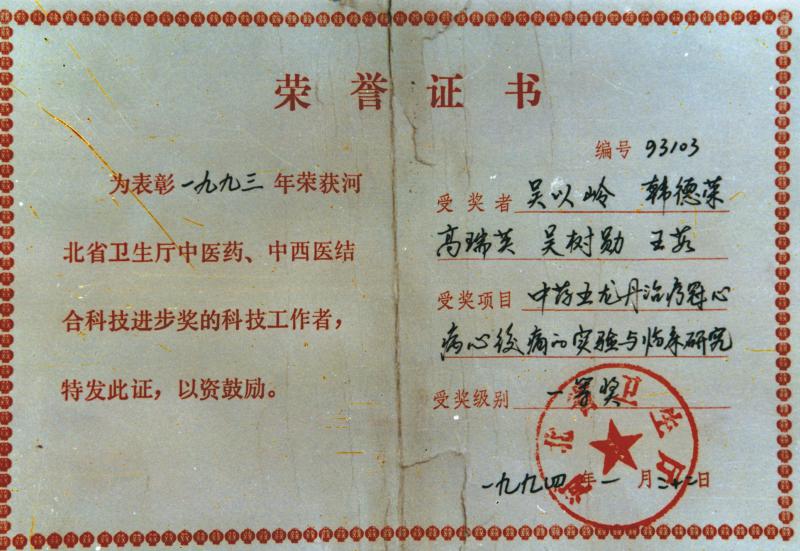 荣誉证书
为表彰一九九三年荣获河
北省卫生厅中医药、中西医结
合科技进步奖的科技工作者，
特发此证，以资鼓励。
编号 93103
受奖者 吴以岭 韩德荣
高瑞英 吴树勋 王
受奖项目 中药五龙丹治疗冠心
病心绞痛的实验与临床研究
受奖级别 一等奖
河北省卫生厅
一九九四年一月二十二日